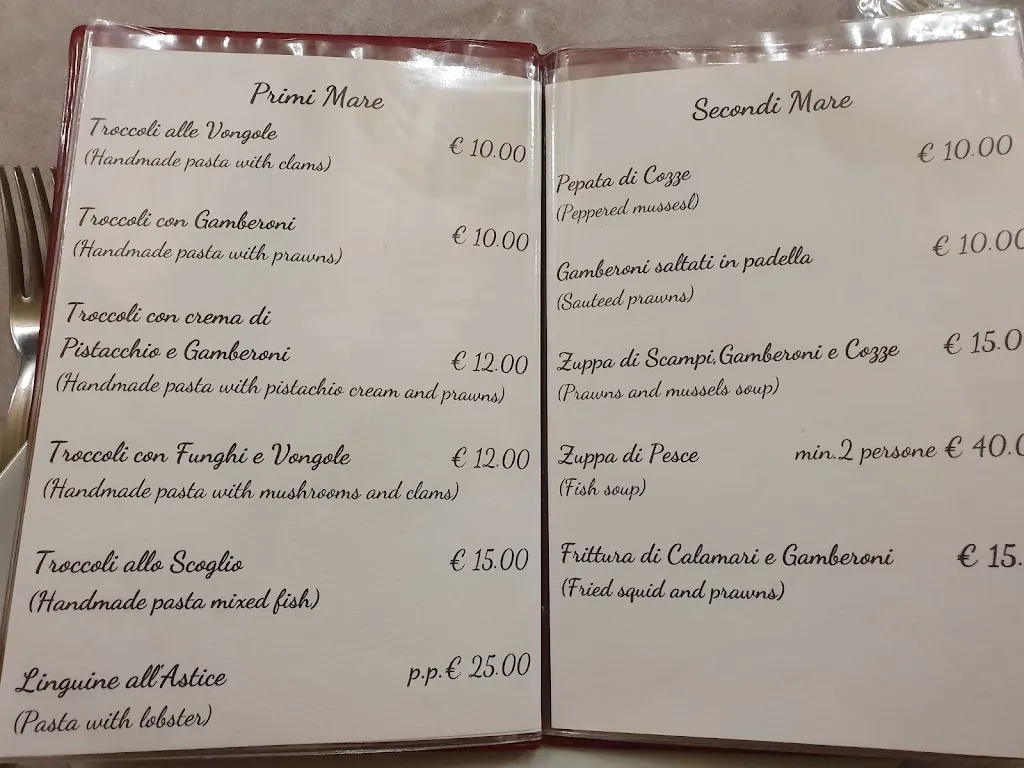 Primi Mare
Troccoli alle Vongole € 10.00
(Handmade pasta with clams)
Troccoli con Gamberoni € 10.00
(Handmade pasta with prawns)
Troccoli con crema di
Pistacchio e Gamberoni € 12.00
(Handmade pasta with pistachio cream and prawns)
Troccoli con Funghi e Vongole € 12.00
(Handmade pasta with mushrooms and clams)
Troccoli allo Scoglio € 15.00
(Handmade pasta mixed fish)
Linguine all'Astice p.p. € 25.00
(Pasta with lobster)
Secondi Mare
Pepata di Cozze € 10.00
(Peppered mussesl)
Gamberoni saltati in padella € 10.00
(Sauteed prawns)
Zuppa di Scampi,Gamberoni e Cozze € 15.0
(Prawns and mussels soup)
Zuppa di Pesce min.2 persone € 40.0
(Fish soup)
Frittura di Calamari e Gamberoni € 15.
(Fried squid and prawns)